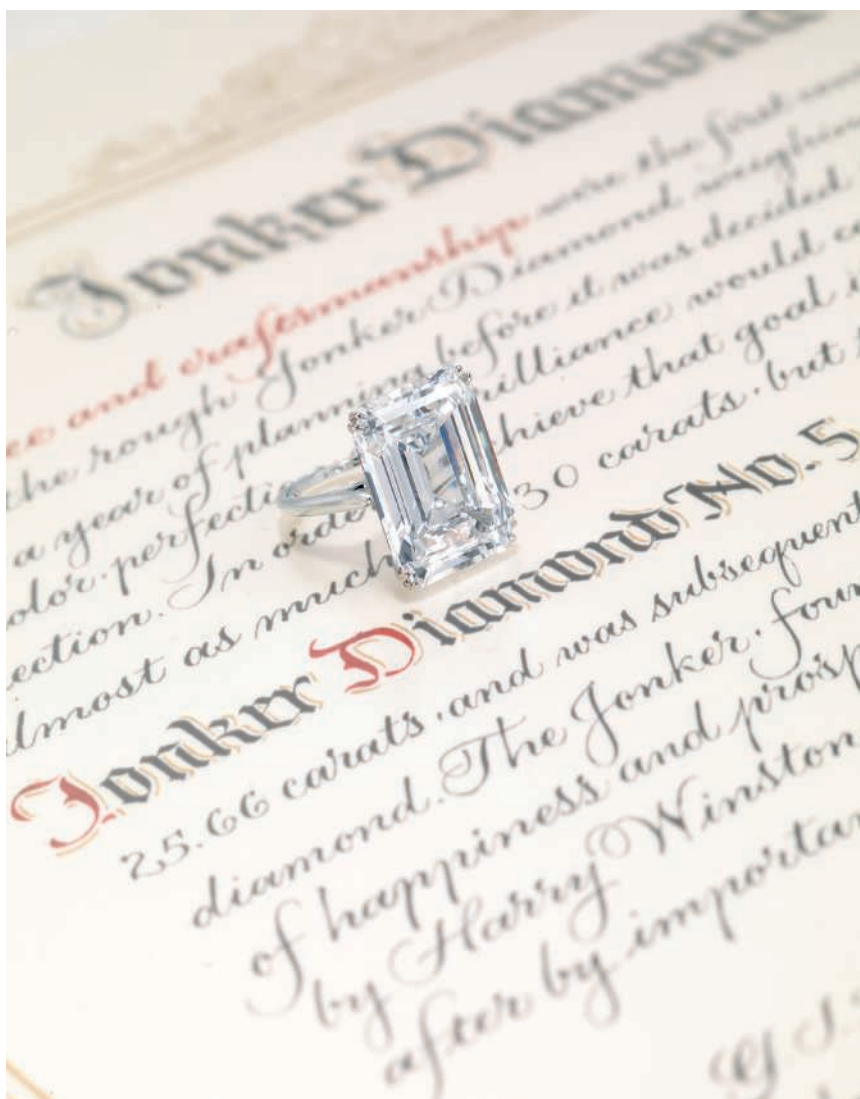 Jonker Diamond
ce and craftsmanship were the first
the rough Jonker Diamond weighin
a year of planning before it was decided
olor, perfecti rilliance would c
ection. In orde chieve that goal i
almost as much 30 carats, but
Jonker Diamond No. 5
25.66 carats, and was subsequent
diamond. The Jonker, four
of happiness and prosp
by Harry Winston
after by importa
G I